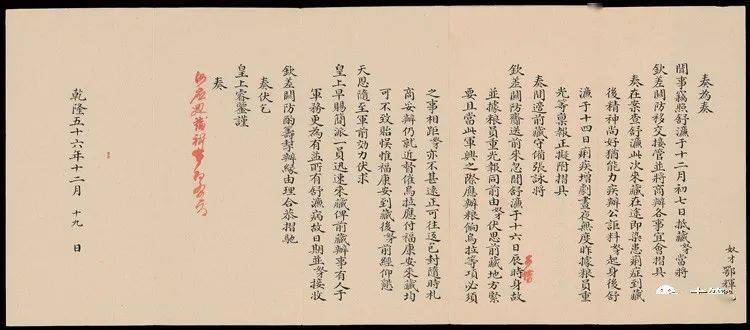 奴才鄂輝
奏為奏
聞事竊照舒濂于十二月初七日抵藏奴才當將
欽差關防移交接管並將商辦各事宜會摺具
奏在案查舒濂此次來藏在途即染患痢症到藏
後精神尚好猶能力疾辦公詎料奴才起身後舒
濂于十四日痢疾增劇晝夜無度昨據粮員重
光等稟報正擬附摺具
奏間適前藏守備張詠將
欽差關防齎送前來忽聞舒濂于十六日辰時身故
並據粮員重光報同前由奴才伏思前藏地方緊
要且當此軍興之際應辦粮餉烏拉等項必須
之事相距奴才亦不甚遠正可往返包封隨時札
商妥辦仍就近督催烏拉應付福康安來藏均
可不致貽悞惟福康安到藏後奴才前經仰懇
天恩隨至軍前効力伏求
皇上早賜簡派一員迅速來藏俾前藏辦事有人于
軍務更為有益所有舒濂病故日期並奴才接收
欽差關防酌籌拏辦緣由理合恭摺馳
奏伏乞
皇上睿鑒謹
奏
乾隆五十六年十二月 十九 日